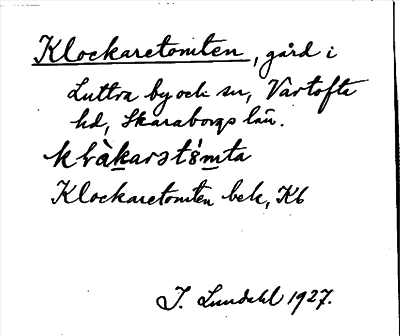 Klockaretomten, gård i
Luttra by och sn, Vartofta
hd, Skaraborgs län.
Klockaretomten bek, Kb
I. Lundahl 1927.